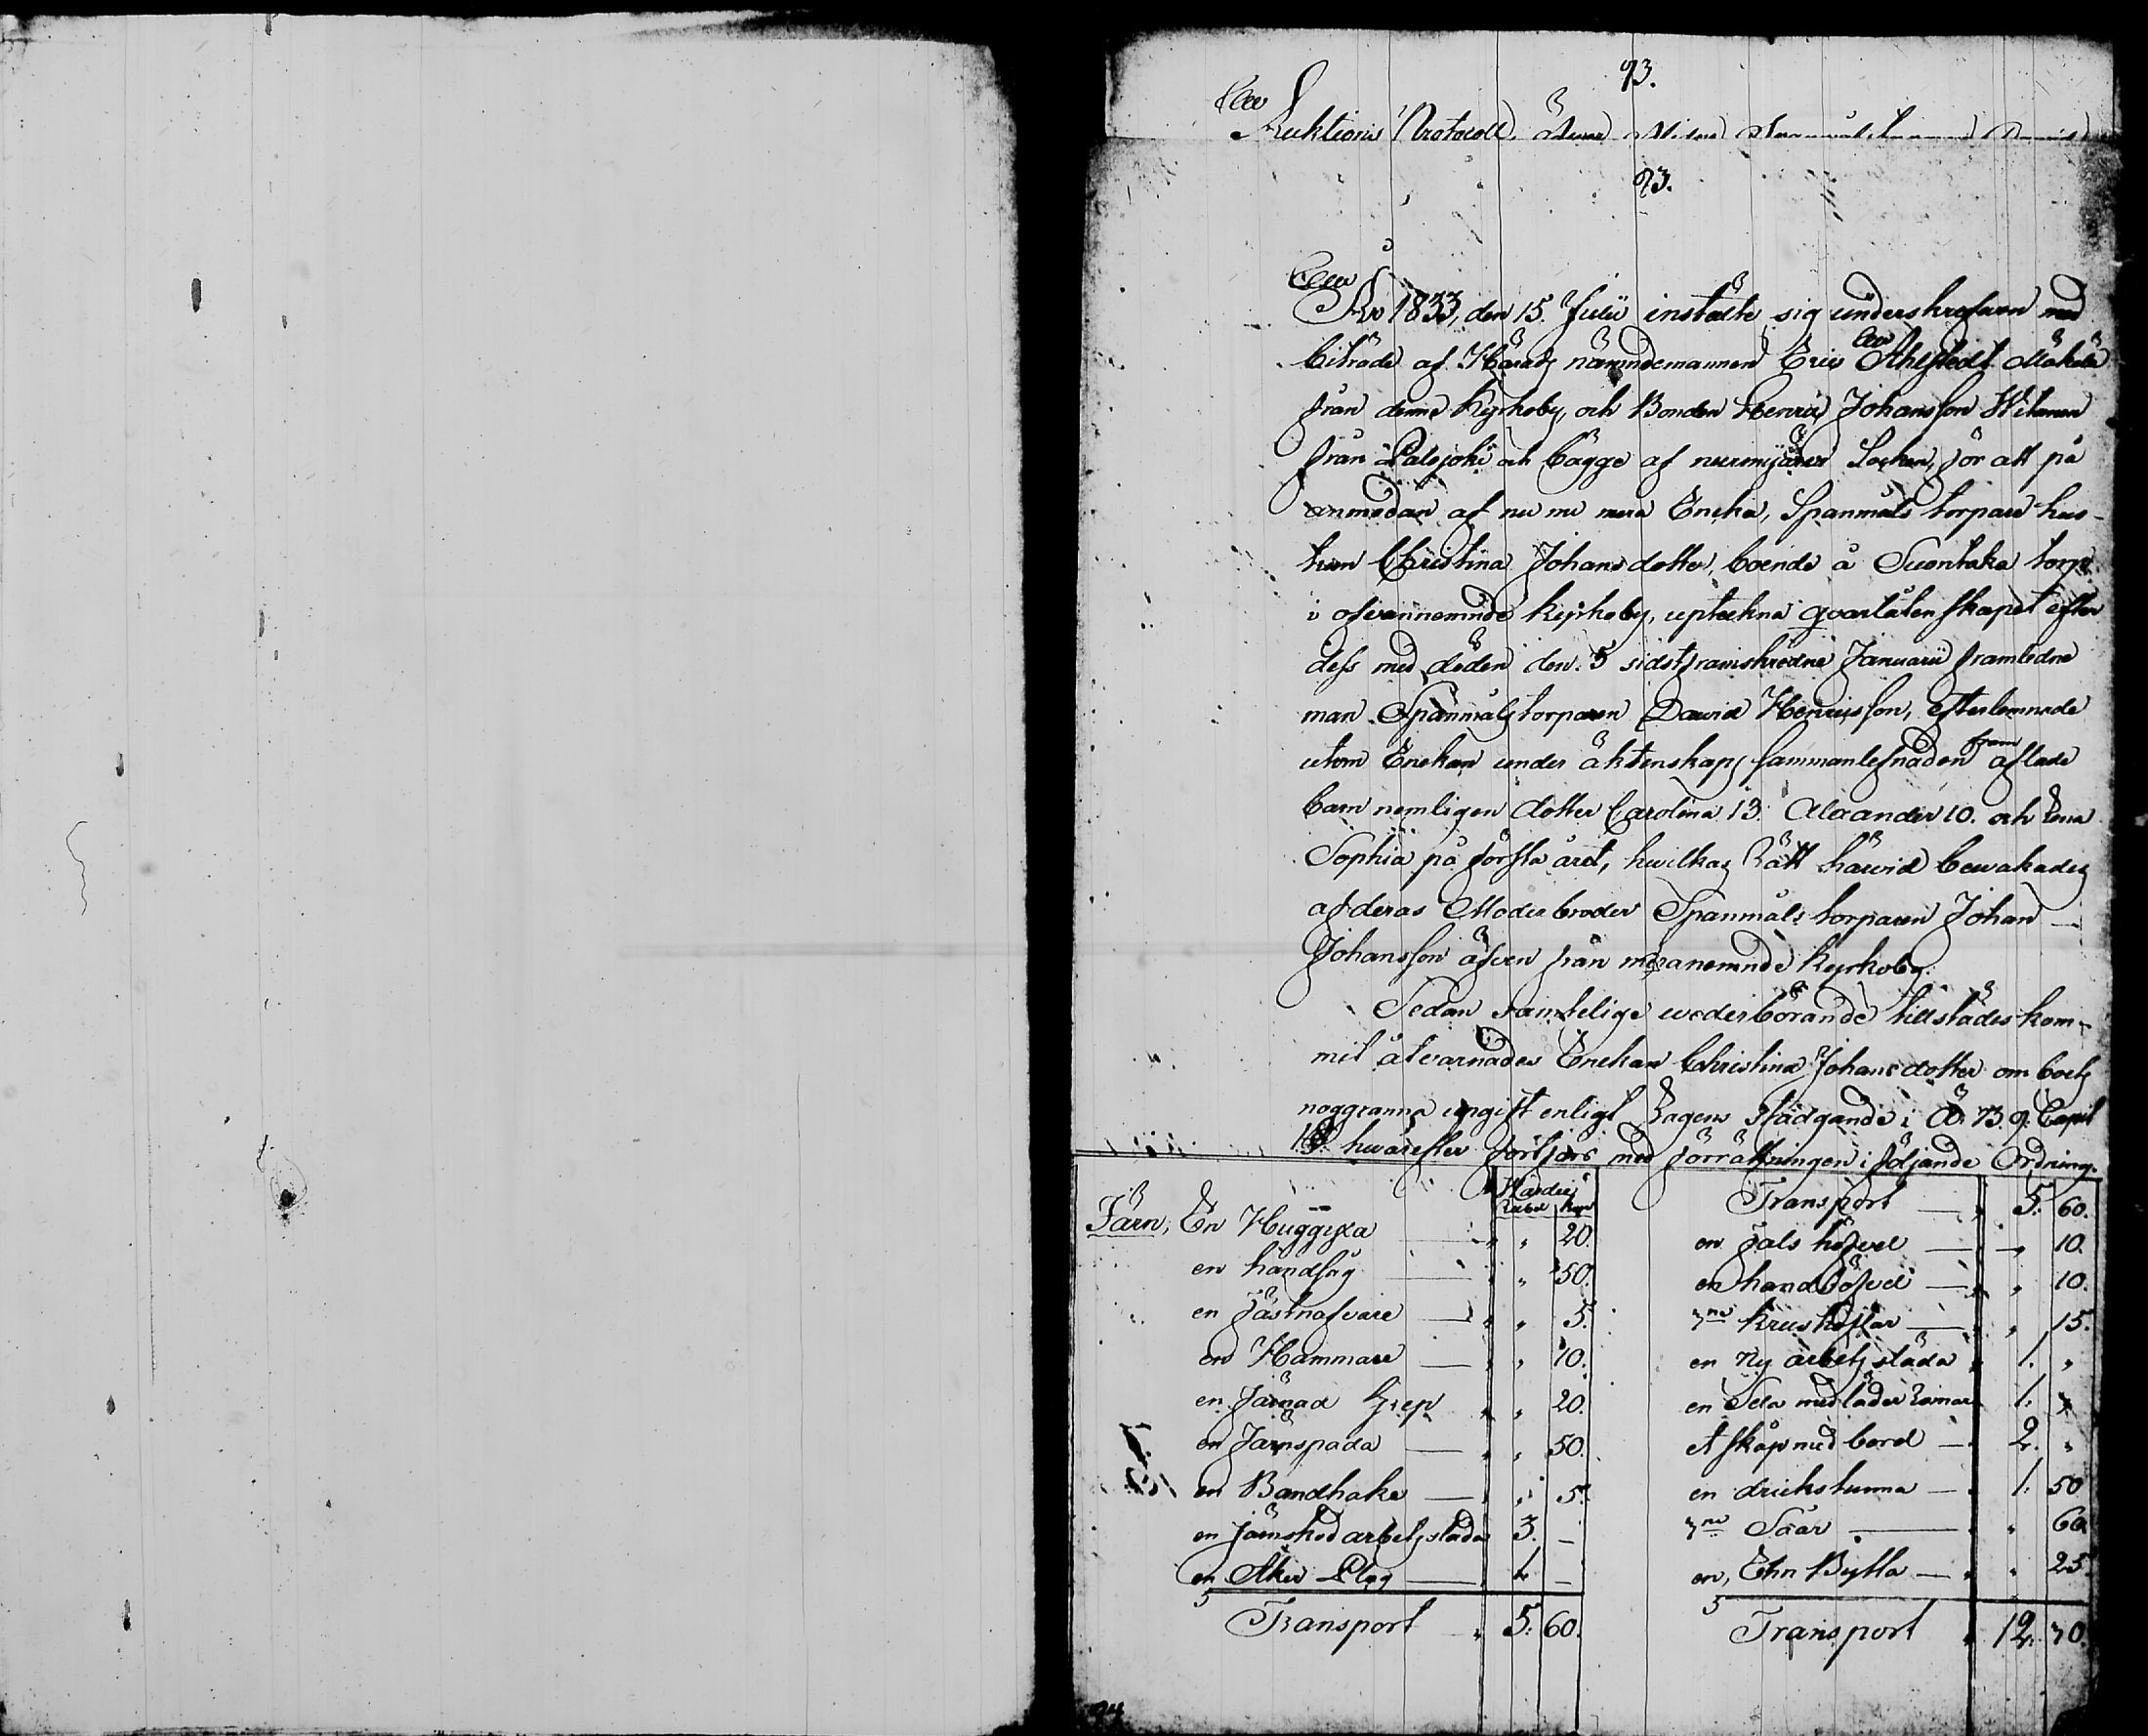 93.
Auktions Protocoll, öfver
93.
År 1833, den 15. Julii instälte sig underskrefven med
biträde af Härads nämndemannen Eric Ahlstedt Mäkelä
från denne Kyrkoby, och Bonden Henric Johansson Witanen
från Palojoki och bägge af nurmijärvi Socken, för att på
anmodan af nu me mera Encka, Spanmåls torpare hus-
trun Christina Johansdotter, boende å Suontaka torp
i ofvannemnde kyrkoby, uptekna qvarlåtenskapet efter
dess med döden den 5 sidstframskredne Januarii framledne
man Spanmåls torparen David Henricsson, efterlemnade
utom Enckan under äktenskaps sammanlefnaden fram aflade
barn nemligen dotter Carolina 13. Alexander 10. och Lena
Sophia på första året, hvilkas Rätt härvid bevakades
af deras Moderbroder Spanmåls torparen Johan
Johansson äfven från meranemnde kyrkoby.
Sedan samtelige vederbörande tillstädes kom-
mit åtvarnades Enckan Christina Johansdotter om boets
noggranna upgift enligt Lagens stadgande i Ä. B. 9. Capit
hvarefter fortfors med förrättningen i följande Ordning.
Värdie
Rubel kop
Järn, En Huggyxa " 20.
en handsåg " 50.
en Fästnafvare " 5.
en Hammare " 10.
en Järnad Grep " 20.
en Järnspada " 50.
en Bandhake " 5.
en järnskod arbetssläda 3. –
en Åker Plog 1. –
Transport 5. 60.
Transport 5. 60.
en Fals höfvel " 10.
en handhöfvel " 10.
3ne krushöflar " 15.
en ny arbetssläda 1. "
en Sela med läder Remar 1. "
et skåp med bord 2. "
en drickstunna 1. 50
3ne Såar " 60
en, Ehn Bytta " 25.
Transport 12. 70.